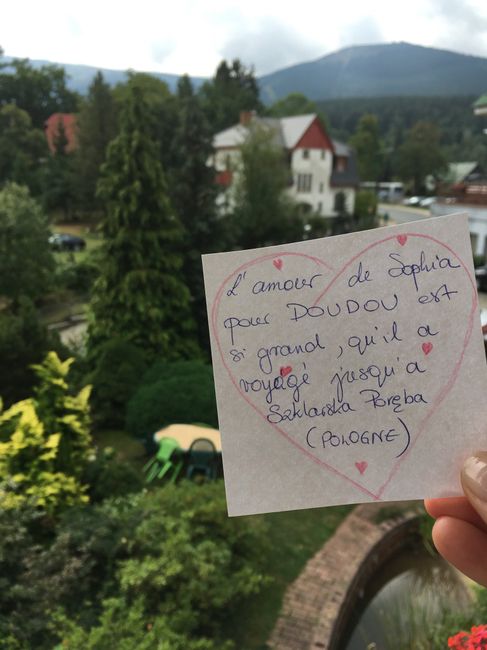 L'amour de Sophia
pour DOUDOU est
si grand, qu'il a
voyagé jusqu'a
Szklarska Poręba
(POLOGNE)